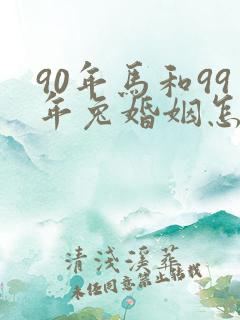 90年馬和99
年兔婚姻怎
清浅溪葬
未经同意禁止转载